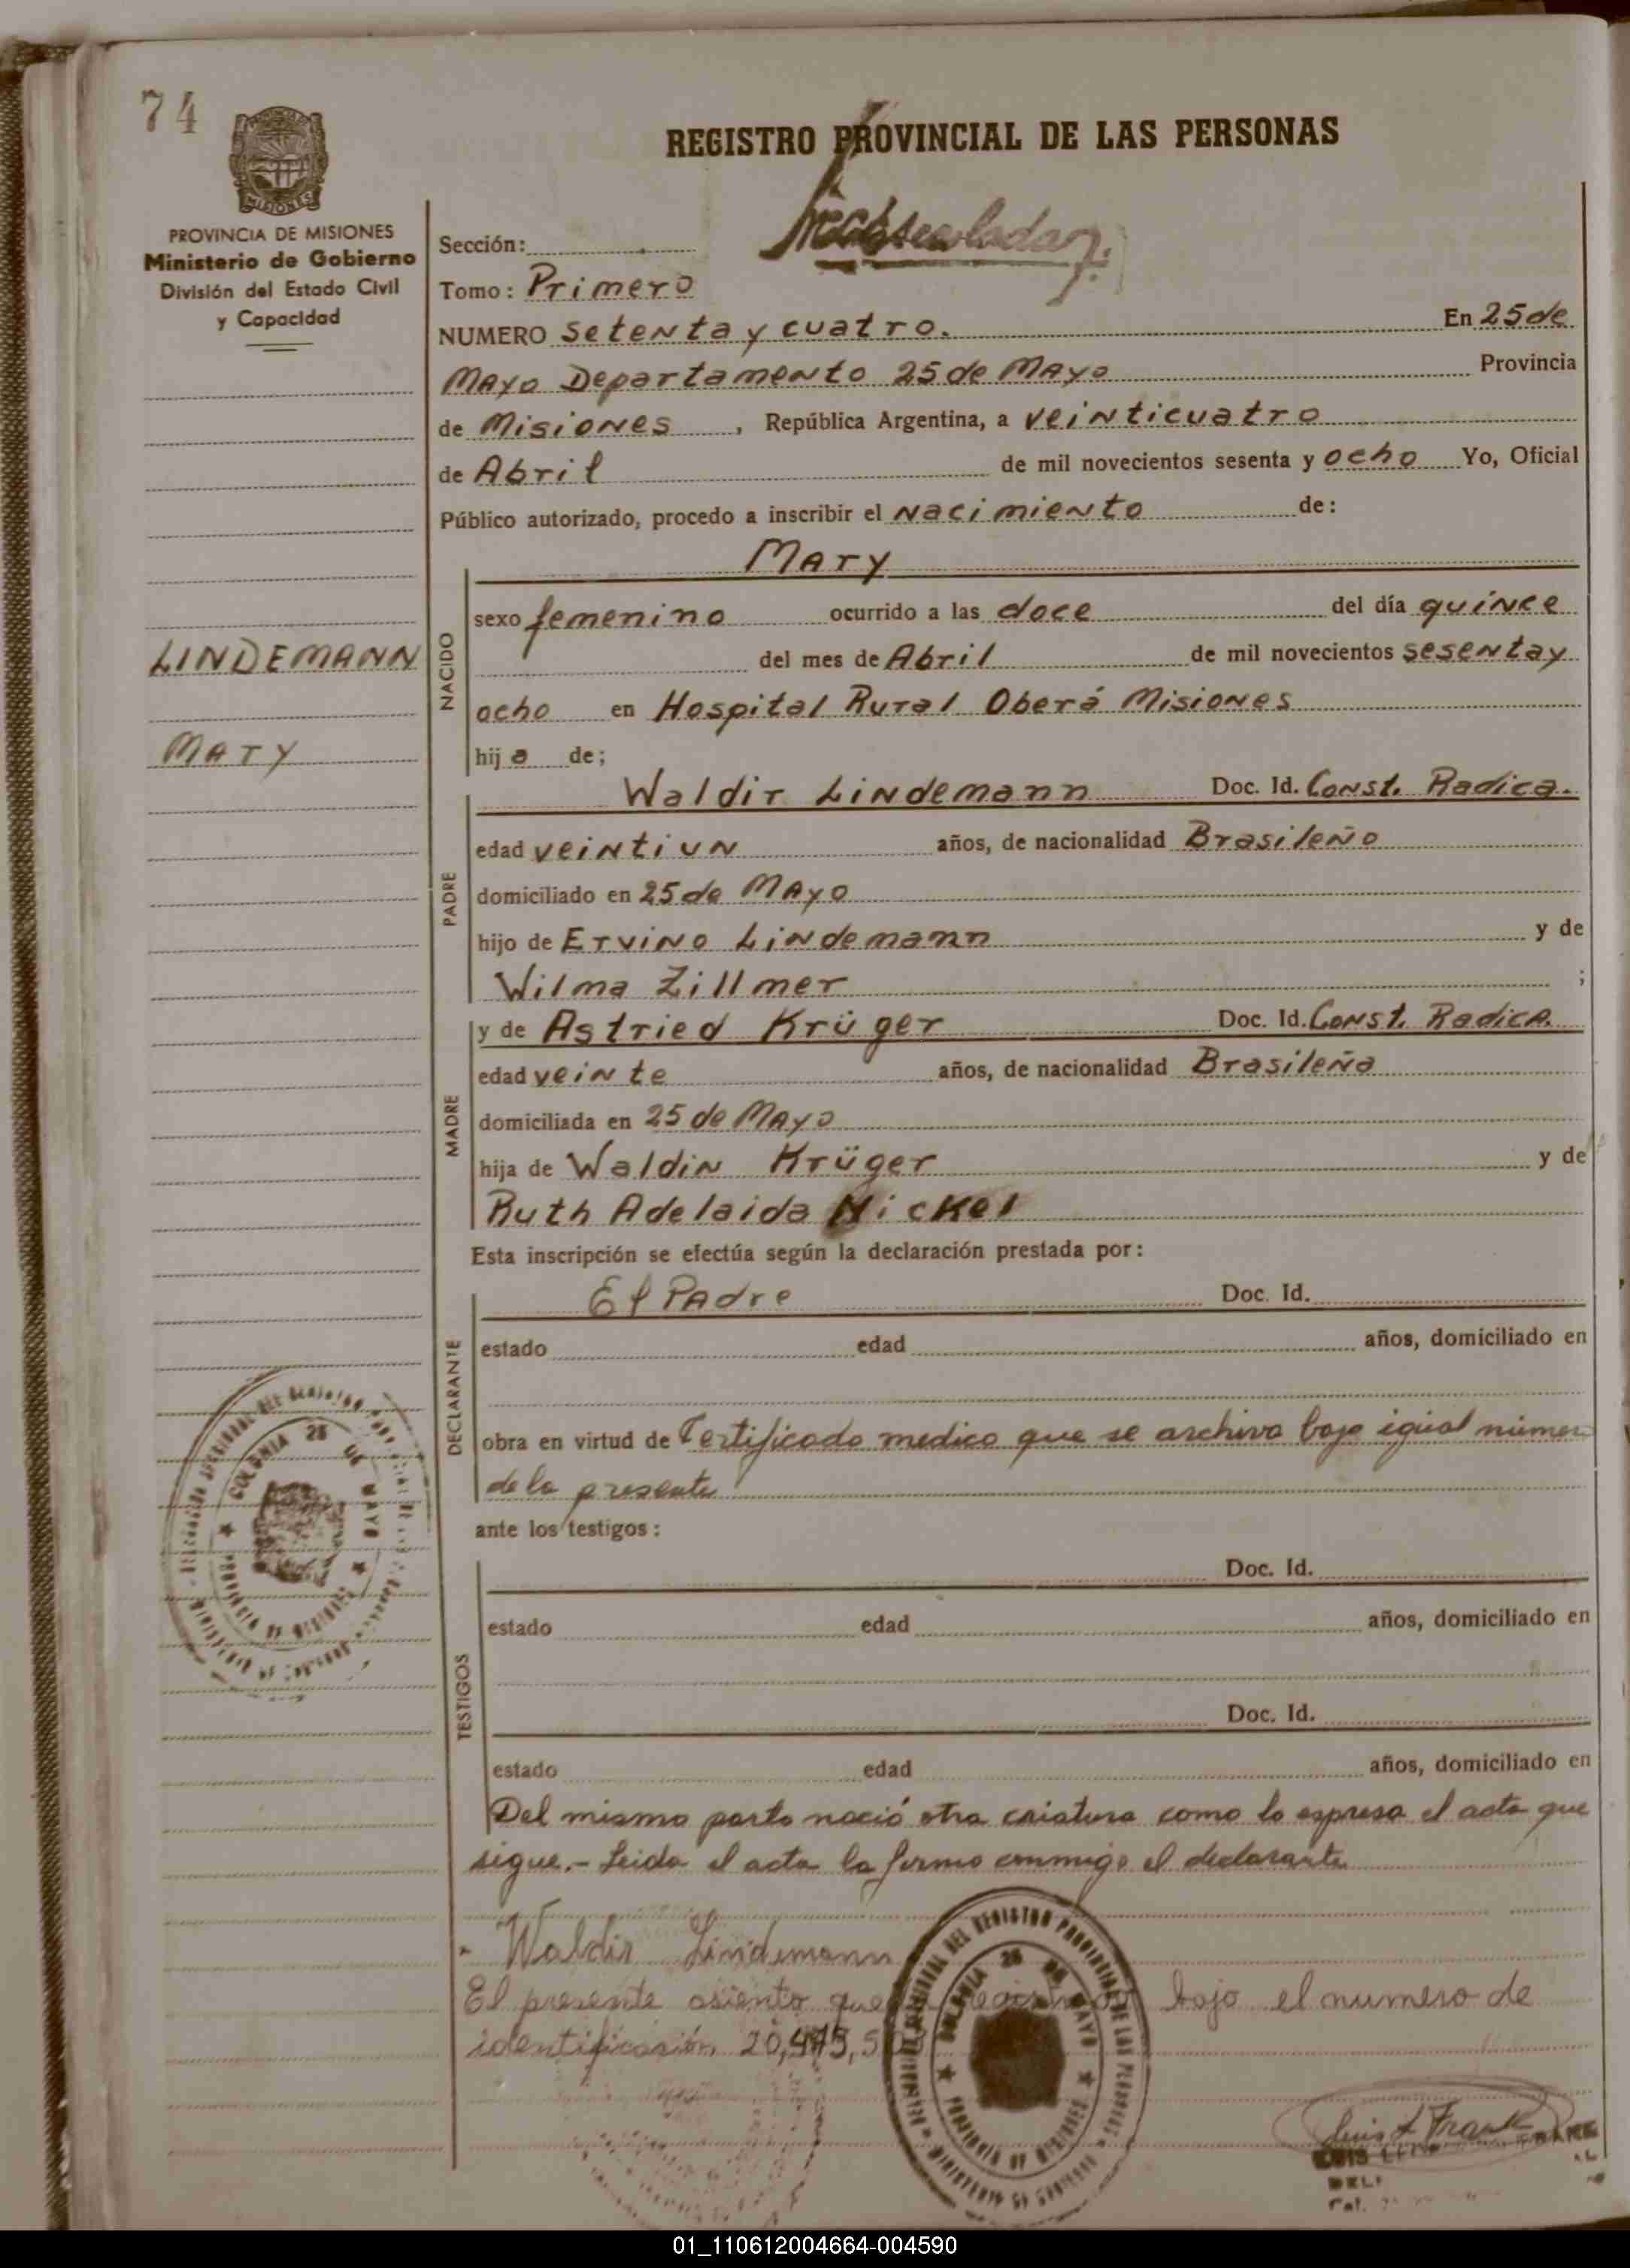 74
MISIONES
REGISTRO PROVINCIAL DE LAS PERSONAS
PROVINCIA DE MISIONES
Ministerio de Gobierno
División del Estado Civil
y Capacidad
Sección:
Tomo: Primero
NUMERO setenta y cuatro. En 25 de
Mayo Departamento 25 de Mayo Provincia
de Misiones, República Argentina, a veinticuatro
de Abril de mil novecientos sesenta y ocho Yo, Oficial
Público autorizado, procedo a inscribir el nacimiento de:
Mary
NACIDO
sexo femenino ocurrido a las doce del día quínce
LINDEMANN
del mes de Abril de mil novecientos sesenta y
ocho en Hospital Rural Oberá Misiones
Mary
hija de;
Waldir Lindemann Doc. Id. Const. Radica.
PADRE
edad veintiun años, de nacionalidad Brasileño
domiciliado en 25 de Mayo
hijo de Ervino Lindemann y de
Wilma Zillmer ;
MADRE
y de Astried Krüger Doc. Id. Const. Radica.
edad veinte años, de nacionalidad Brasileña
domiciliada en 25 de Mayo
hija de Waldin Krüger y de
Ruth Adelaida Nickel
Esta inscripción se efectúa según la declaración prestada por:
El Padre Doc. Id.
DECLARANTE
estado edad años, domiciliado en
obra en virtud de Certificado medico que se archiva bajo igual númer
de la presente
ante los testigos:
TESTIGOS
Doc. Id.
estado edad años, domiciliado en
Doc. Id.
estado edad años, domiciliado en
Del mismo parto nació otra criatura como lo espresa el acta que
sigue.- Leida el acta la firmo conmigo el declarante
Waldir Lindemann
El presente asiento bajo el numero de
identificación
COLONIA 25 DE MAYO
PROVINCIA DE MISIONES
COLONIA 25 DE MAYO
PROVINCIA DE MISIONES
Luis L Frank
01_110612004664-004590